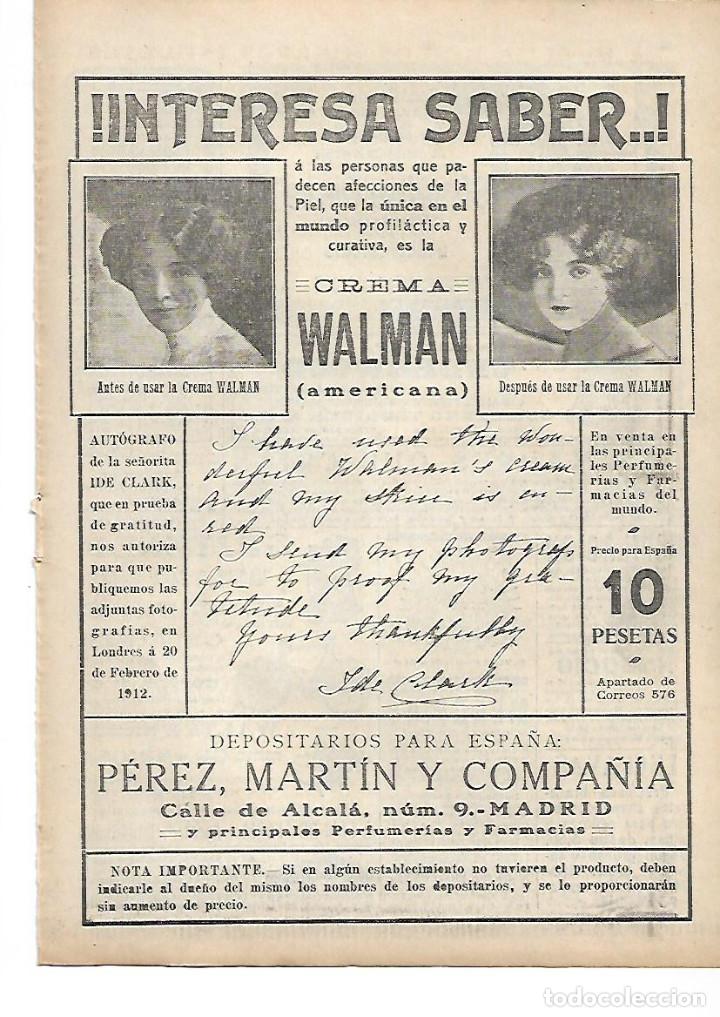 !INTERESA SABER..!
á las personas que pa-
decen afecciones de la
Piel, que la única en el
mundo profiláctica y
curativa, es la
CREMA
WALMAN
(americana)
Antes de usar la Crema WALMAN
Después de usar la Crema WALMAN
AUTÓGRAFO
de la señorita
IDE CLARK,
que en prueba
de gratitud,
nos autoriza
para que pu-
bliquemos las
adjuntas foto-
grafías, en
Londres á 20
de Febrero de
1912.
I have used the won-
derful Walman's cream
and my skin is cu-
red
I send my photografs
for to proof my gra-
titude
Yours thankfully
Ide Clark
En venta en
las principa-
les Perfume-
rias y Far-
macias del
mundo.
Precio para España
10
PESETAS
Apartado de
Correos 576
DEPOSITARIOS PARA ESPAÑA:
PÉREZ, MARTÍN Y COMPAÑÍA
Calle de Alcalá, núm. 9.-MADRID
y principales Perfumerías y Farmacias
NOTA IMPORTANTE.—Si en algún establecimiento no tuvieren el producto, deben
indicarle al dueño del mismo los nombres de los depositarios, y se lo proporcionarán
sin aumento de precio.
todocoleccion